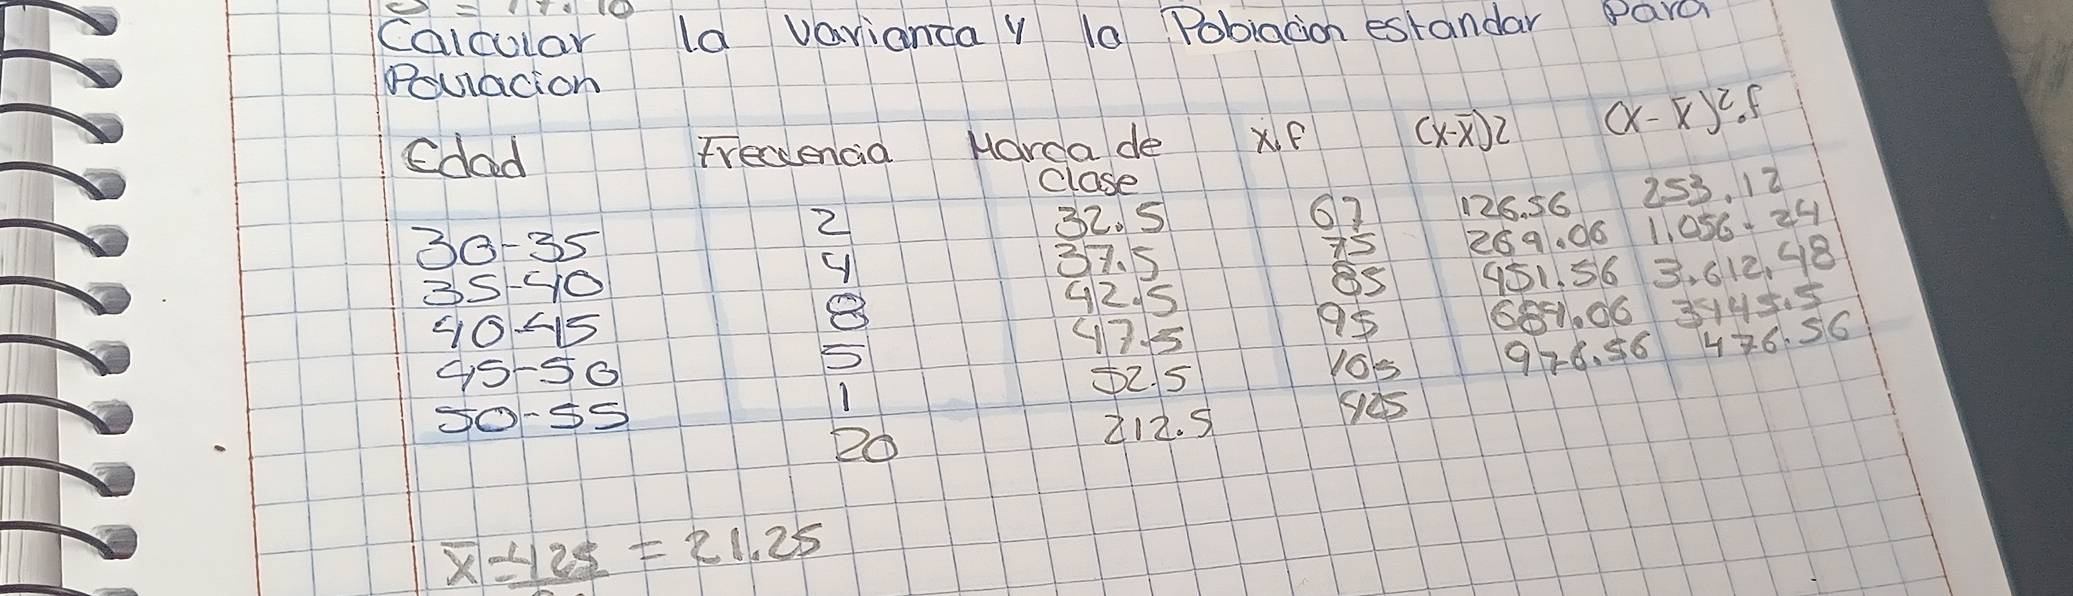 Calcular la varianza y la Poblacion estandar para
Poulacion
Edad Frecuencia Marca de Clase x.f (x-x̄)2 (x-x̄)².f
30-35 2 32.5 67 126.56 253.12
35-40 4 37.5 75 269.06 1.056.24
40-45 8 42.5 85 451.56 3.612.48
45-50 5 47.5 95 689.06 3445.5
50-55 1 52.5 105 976.56 476.56
20 212.5 425
x̄=425 = 21.25